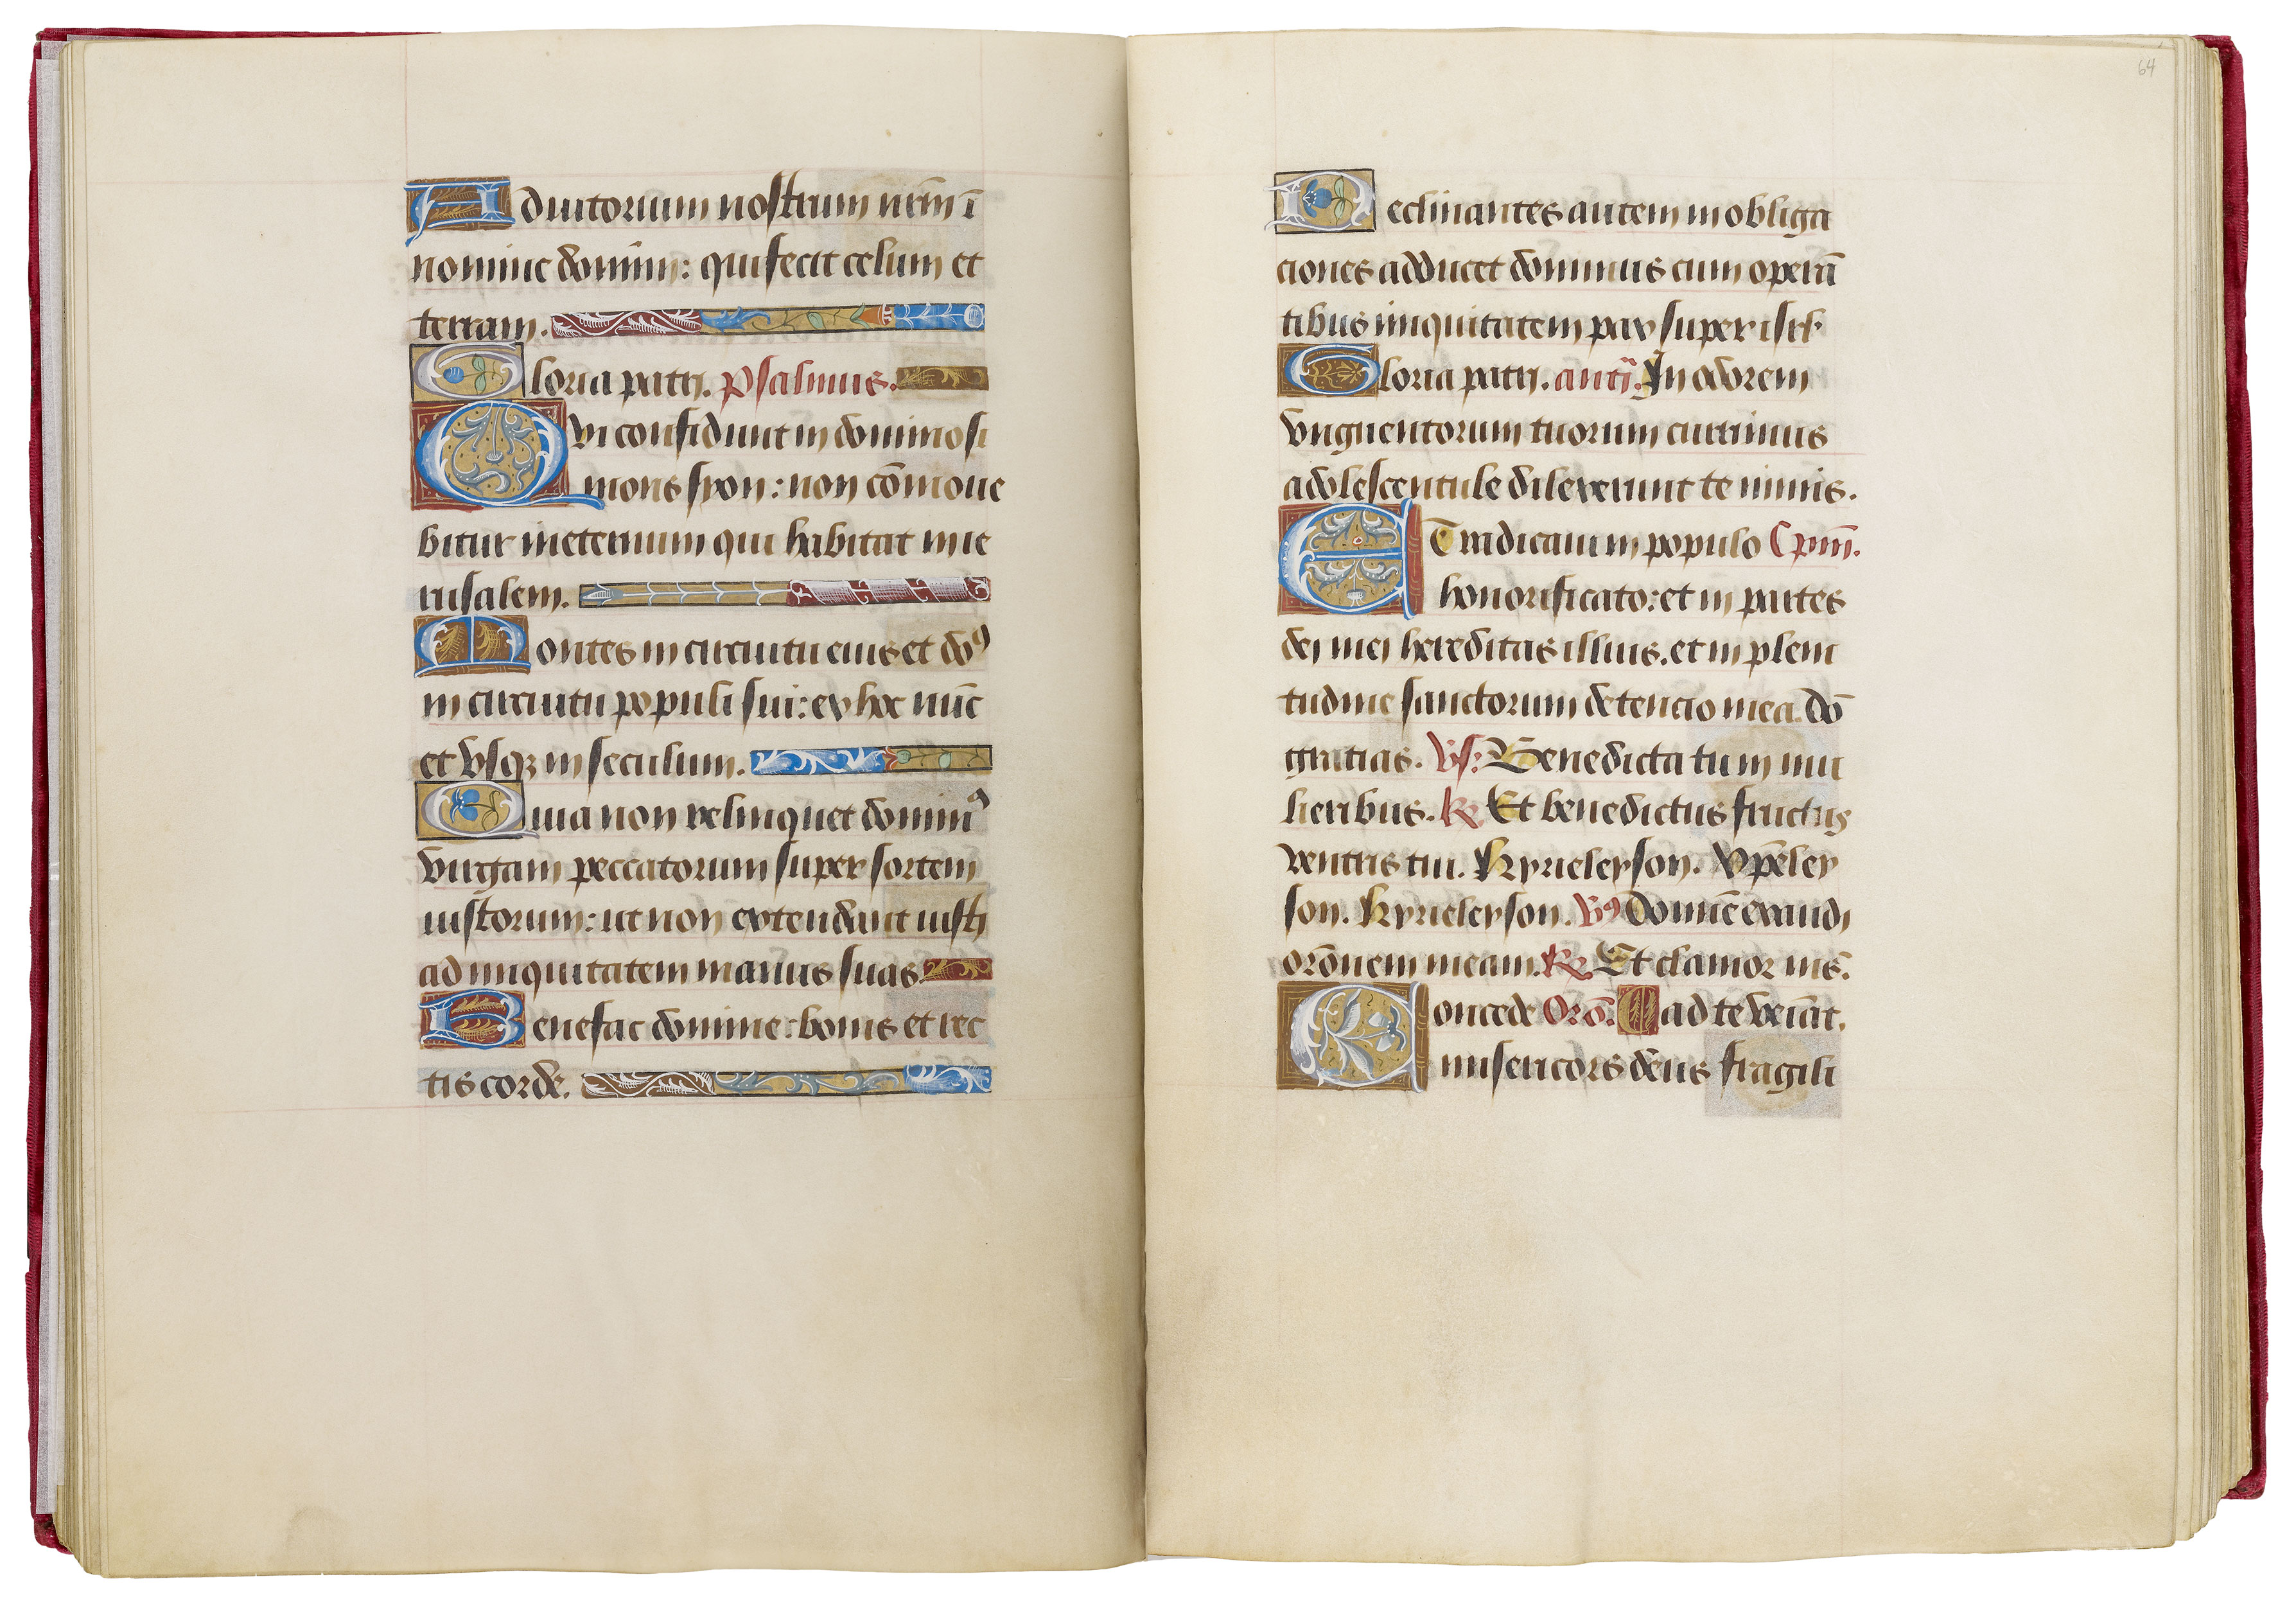 Adiutorium nostrum nr̄m ī
nomine domini: qui fecit celum et
terram.
Gloria patri. psalmus.
Qvi confidunt in domino si
mons syon: non cōmoue
bitur in eternum qui habitat in ie
rusalem.
Montes in circuitu eius et do⁹
in circuitu populi sui: ex hoc nūc
et vsqꝫ in seculum.
Quia non relinquet domin⁹
virgam peccatorum super sortem
iustorum: ut non extendant iusti
ad iniquitatem manus suas.
Benefac domine: bonis et rec
tis corde.
64
Declinantes autem in obliga
ciones adducet dominus cum operā
tibus iniquitatem pax super isrl̄.
Gloria patri. antī. In odorem
vnguentorum tuorum currimus
adolescentule dilexerunt te nimis.
ET radicaui in populo Cpm̄.
honorificato: et in partes
dei mei hereditas illius. et in pleni
tudine sanctorum detencio mea. dō
gratias. Vs: Benedicta tu in mu
lieribus. R Et benedictus fructus
ventris tui. Kyrieleyson. Xp̄eley
son. Kyrieleyson. V⁹ Domīe exaudi
orōnem meam. R Et clamor me⁹.
Concede Orō: ad te veniat.
misericors deus fragili